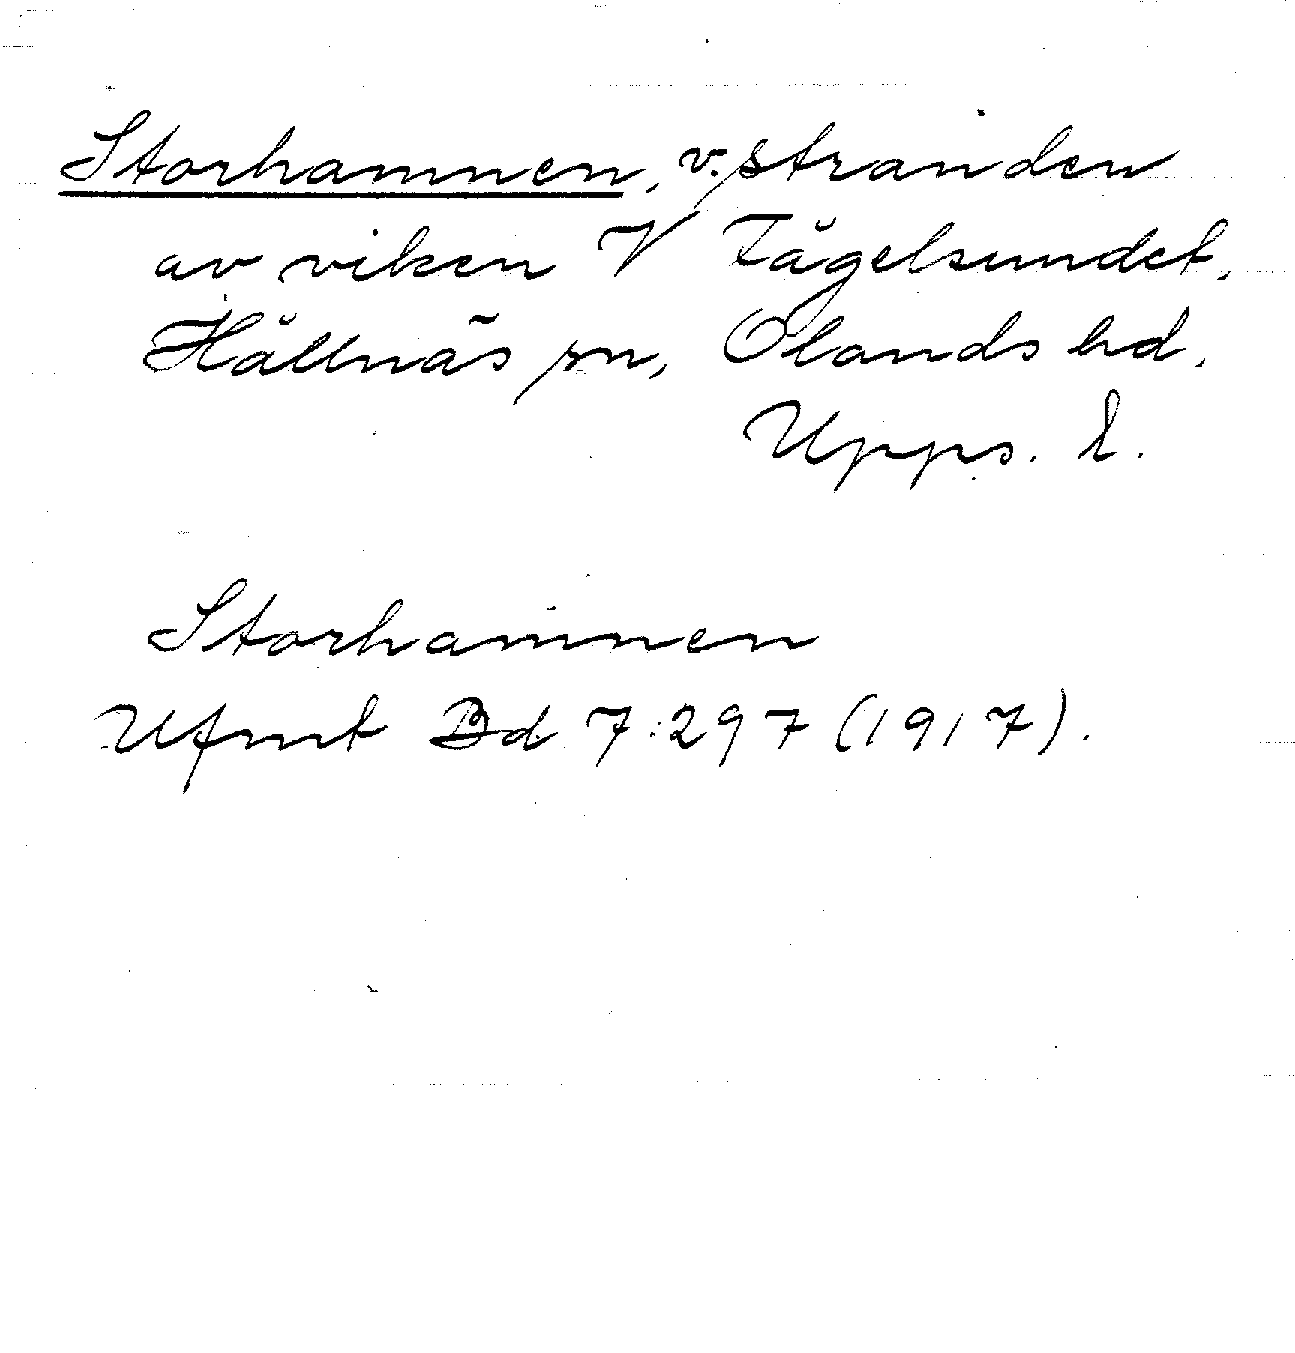 Storhamnen, v. stranden
av viken V Tågelsundet,
Hållnäs sn, Olands hd,
Upps. l.
Storhamnen
Ufmt Bd 7:297 (1917).